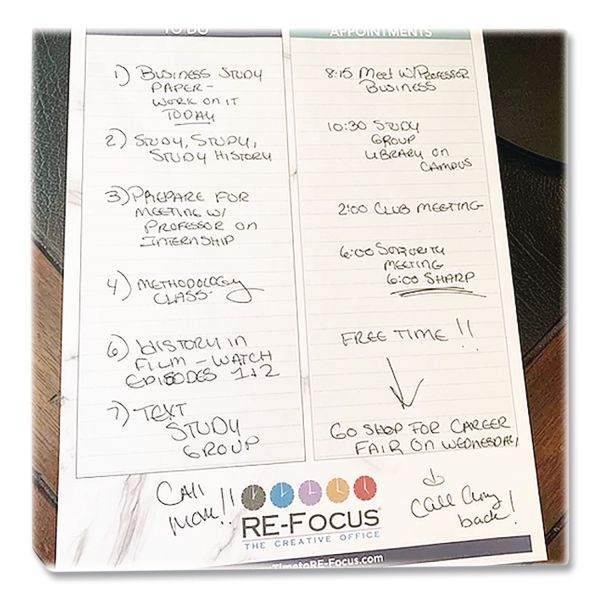 TO DO
1) BUSINESS STUDY
PAPER-
WORK ON IT
TODAY
2) STUDY, STUDY,
STUDY HISTORY
3) PREPARE FOR
MEETING W/
PROFESSOR ON
INTERNSHIP
4) METHODOLOGY
CLASS
6) HISTORY IN
FILM - WATCH
EPISODES 1+2
7) TEXT
STUDY
GROUP
APPOINTMENTS
8:15 MEET W/PROFESSOR
BUSINESS
10:30 STUDY
GROUP
LIBRARY ON
CAMPUS
2:00 CLUB MEETING
6:00 SORORITY
MEETING
6:00 SHARP
FREE TIME !!
GO SHOP FOR CAREER
FAIR ON WEDNESDAY!
CALL
MOM!!
RE-FOCUS
THE CREATIVE OFFICE
CALL Amy
back!
TimetoRE-Focus.com